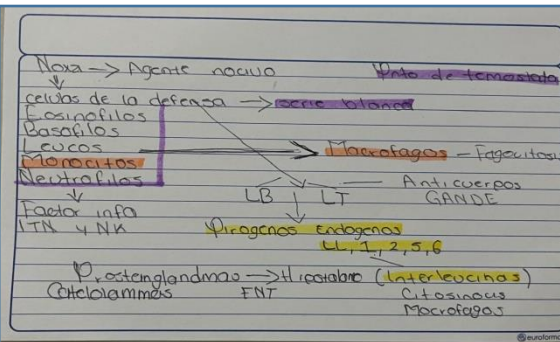 Noxa → Agente nocivo
Pnto de temostato
celulas de la defensa → serie blanca
Eosinofilos
Basofilos
Leucos
Monocitos → Macrofagos - Fagocitosis
Neutrofilos
LB LT - Anticuerpos
GANDE
Factor info
ITN y NK
Pirogenos Endogenos
LL, 1, 2, 5, 6
→ (Interleucinas)
FNT
Macrofagos
euroform